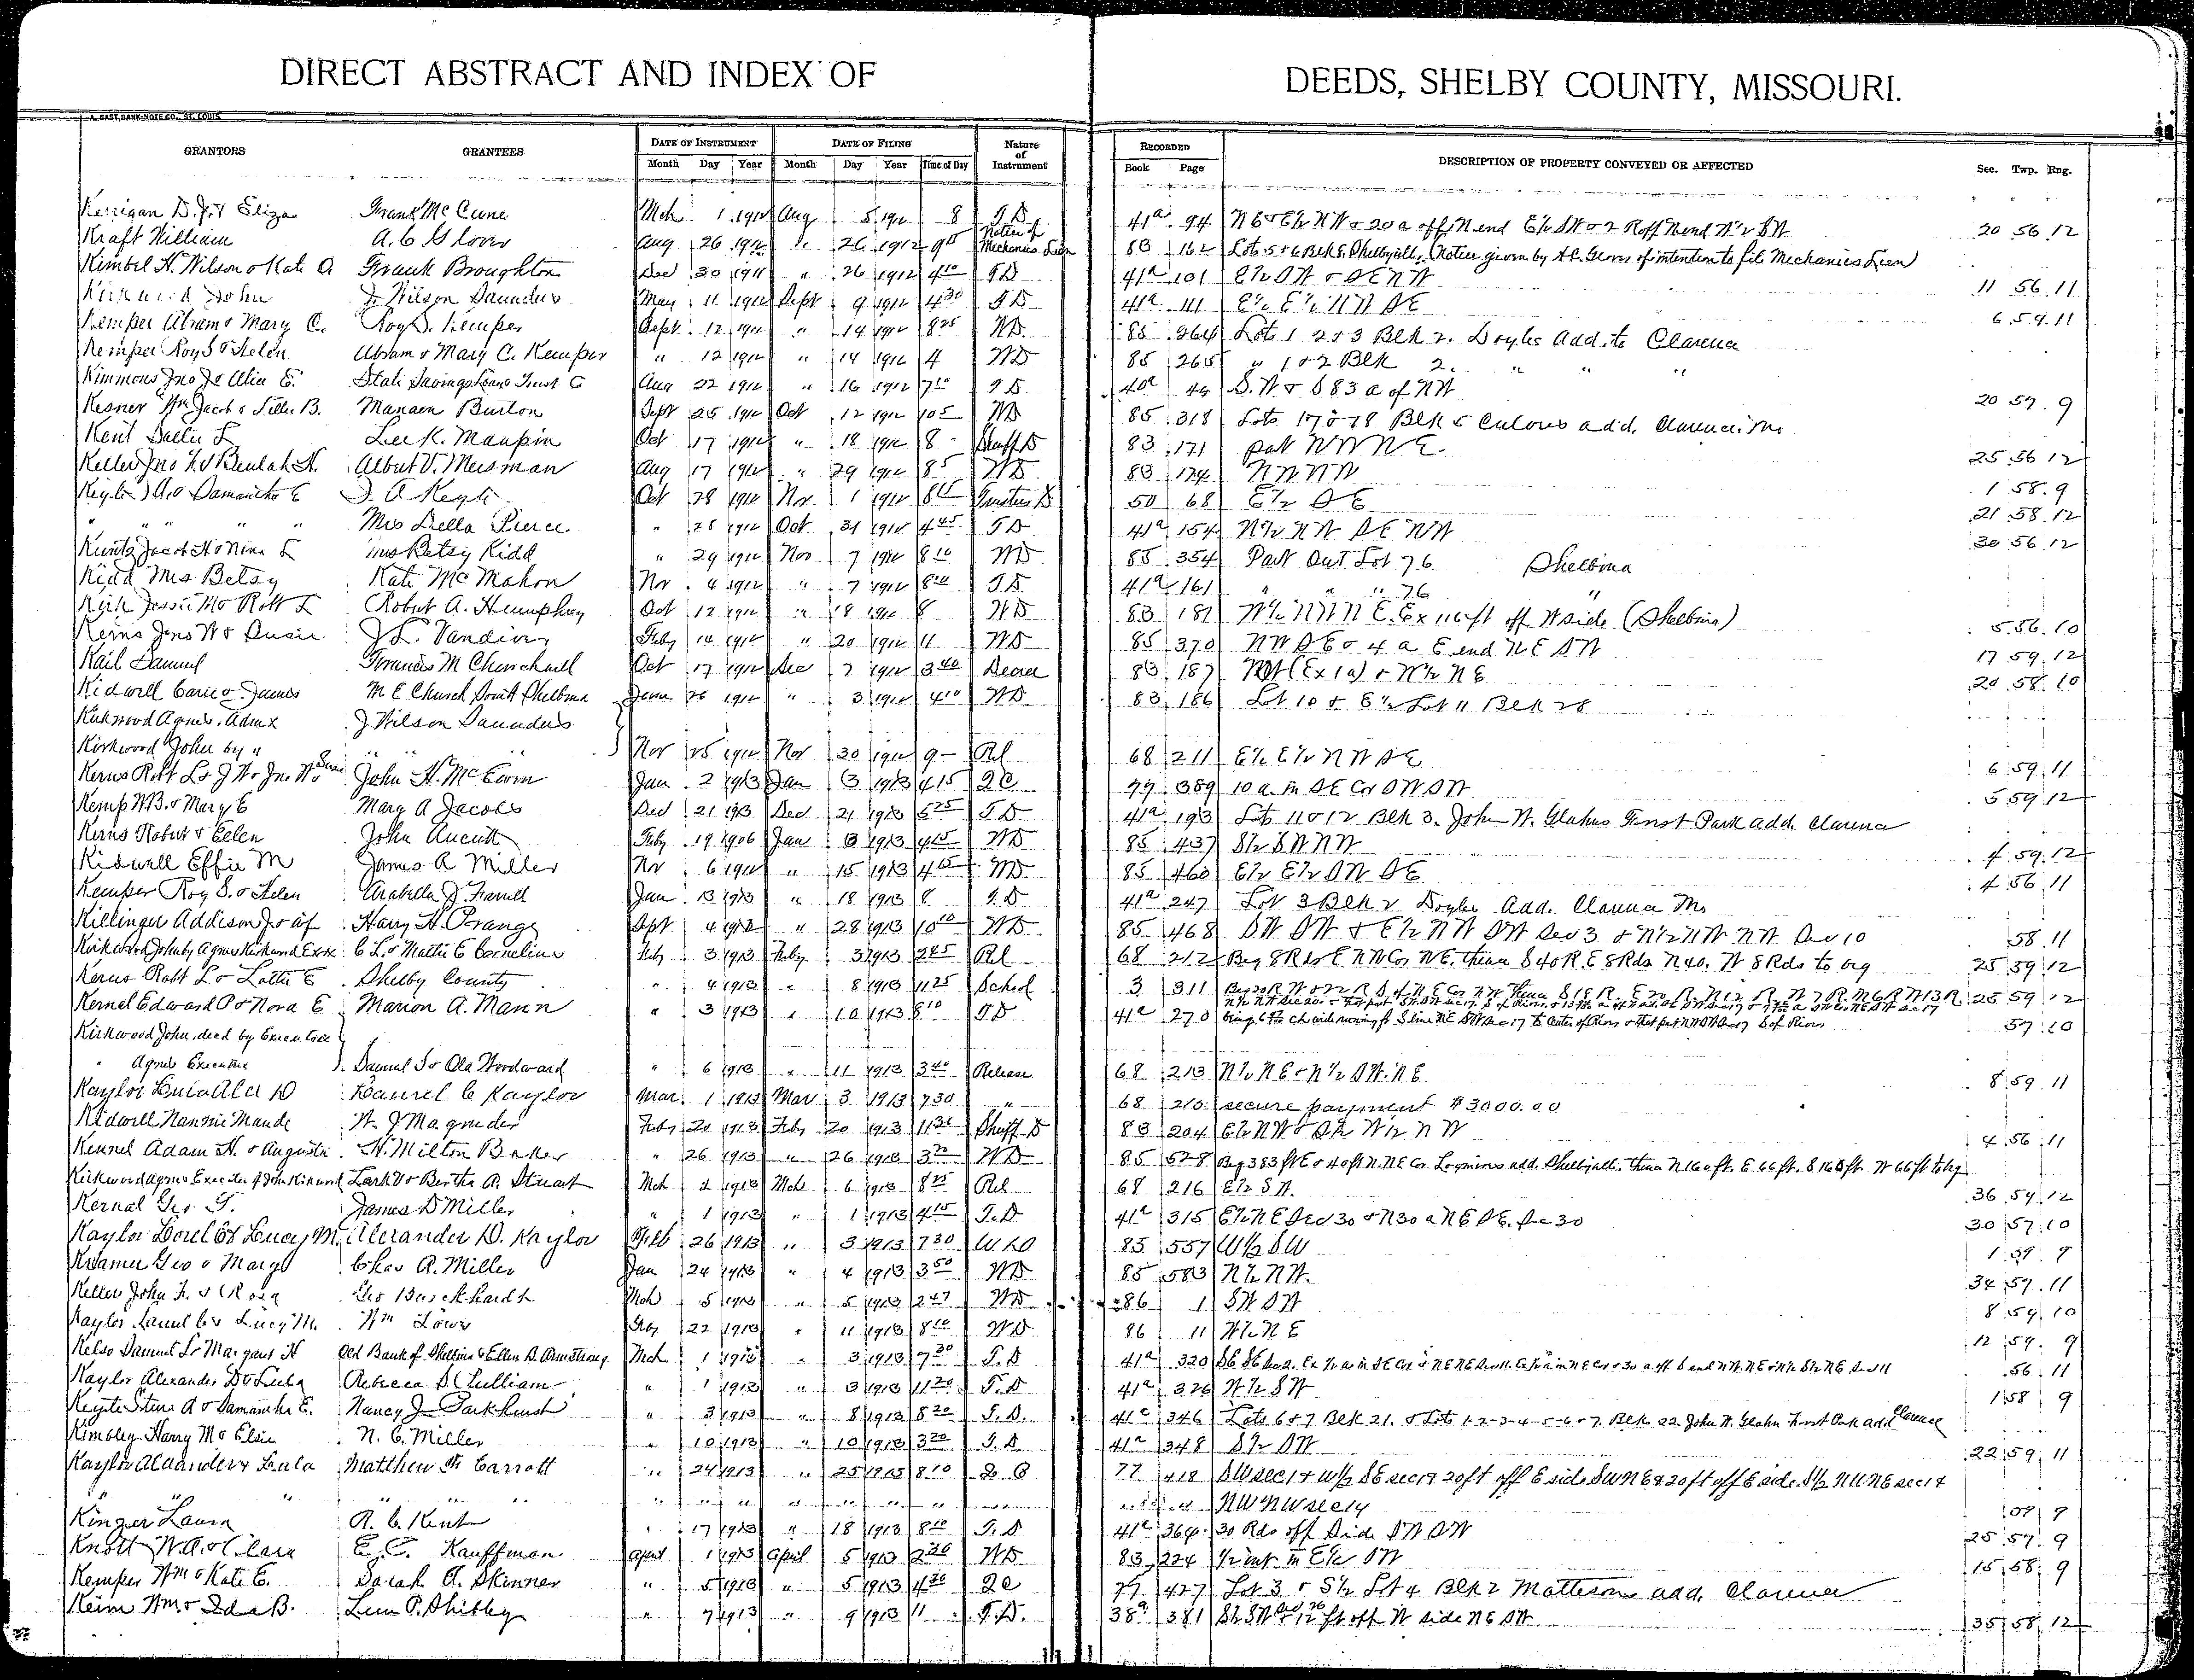 DIRECT ABSTRACT AND INDEX OF DEEDS, SHELBY COUNTY, MISSOURI.
A. GAST BANK NOTE CO., ST. LOUIS
GRANTORS GRANTEES DATE OF INSTRUMENT DATE OF FILING Nature of Instrument RECORDED DESCRIPTION OF PROPERTY CONVEYED OR AFFECTED Sec. Twp. Rng.
Month Day Year Month Day Year Time of Day Book Page
Kerrigan D. J. & Eliza Frank McCune Mch 1 1912 Aug 5 1912 8 T D 41a 94 N E & E½ N W & 20 a off N end E½ S W & 2 R off N end W½ S W 20 56 12
Kraft William A. C. Glover Aug 26 1912 " 26 1912 Notice of Mechanics Lien 83 162 Lots 5 & 6 Blk 8 Shelbyville, (Notice given by A.C. Glover of intention to file Mechanics Lien)
Kimbel H. Wilson & Kate A Frank Broughton Dec 30 1911 " 26 1912 4 10 T D 41a 101 E½ S W & S E N W 11 56 11
Kirkwood John J. Wilson Saunders May 11 1912 Sept 9 1912 4 30 T D 41a 111 E½ E½ N W S E 6 59 11
Kemper Abram & Mary C. Roy S. Kemper Sept 12 1912 " 14 1912 8 25 W D 85 264 Lots 1-2 & 3 Blk 2. Doyles Add. to Clarence
Kemper Roy S & Helen Abram & Mary C. Kemper " 12 1912 " 14 1912 4 W D 85 265 " 1 & 2 Blk 2. " " "
Kimmons Jno J & Alice E. State Savings Loan & Trust Co Aug 22 1912 " 16 1912 7 10 T D 40a 44 S. W & S 83 a of N W 20 57 9
Kesner Wm Jacob & Tillie B. Manaen Burton Sept 25 1912 Oct 12 1912 10 5 W D 85 318 Lots 17 & 18 Blk 5 Culvers add. Clarence, Mo
Kent Sallie L Lee K. Maupin Oct 17 1912 " 18 1912 8 Shuff D 83 171 part N W N E 25 56 12
Keller Jno F. & Beulah H. Albert V. Meisman Aug 17 1912 " 29 1912 8 5 W D 83 174 N W N W 1 58 9
Keyte J A. & Samantha E J. A Keyte Oct 28 1912 Nov 1 1912 Trustees D 50 68 E½ S E 21 58 12
" " " " Mrs Della Pierce. " 28 1912 Oct 31 1912 4 45 T D 41a 154 N½ N W S E N W 30 56 12
Kuntz Jacob H & Nina L Mrs Betsy Kidd " 29 1912 Nov 7 1912 8 10 W D 85 354 Part Out Lot 76 Shelbina
Kidd Mrs Betsy Kate McMahon Nov 4 1912 " 7 1912 8 10 T D 41a 161 " " " 76 "
Kirk Jessie M & Robt L Robert A. Humphrey Oct 12 1912 " 18 1912 8 W D 83 181 W½ N W N E. Ex 116 ft off W side (Shelbina) 5 56 10
Kerns Jno W & Susie J L. Vandiver Feby 14 1912 " 20 1912 11 W D 85 370 N W S E & 4 a E end N E S W 17 59 12
Kail Samuel Francis M Churchwell Oct 17 1912 Dec 7 1912 3 40 Decree 83 187 NW (Ex 1a) & W½ N E 20 58 10
Kidwell Carie & James M E Church South Shelbina June 26 1912 " 3 1912 4 10 W D 83 186 Lot 10 & E½ Lot 11 Blk 28
Kirkwood Agnes, Admx J. Wilson Saunders
Kirkwood John by " " " Nov 25 1912 Nov 30 1912 9 - Rel 68 211 E½ E½ N W S E 6 59 11
Kerns Robt L & J W & Jno W & Susie John H. McEwin Jan 2 1913 Jan 3 1913 4 15 Q C 77 389 10 a. in S E Cor S W S W 5 59 12
Kemp W.B. & Mary E Mary A Jacobs Dec 21 1913 Dec 21 1913 5 25 T D 41a 193 Lots 11 & 12 Blk 3. John W. Glahns Forest Park add. Clarence
Kerns Robert & Ellen John Aucutt Feby 19 1906 Jan 3 1913 4 15 W D 85 437 S½ S W N W 4 59 12
Kidwell Effie M James A Miller Nov 6 1912 " 15 1913 4 15 W D 85 460 E½ E½ S W S E 4 56 11
Kemper Roy S. & Helen Arabella J. Farrell Jan 13 1913 " 18 1913 8 T. D 41a 247 Lot 3 Blk 2 Doyles Add. Clarence Mo
Killinger Addison J & wf Harry H. Prange Sept 4 1912 " 28 1913 10 10 W D 85 468 S W S W & E½ N W S W Sec 3 & N½ N W N W Sec 10 58 11
Kirkwood John by Agnes Kirkwood Exrx C L & Mattie E Cornelius Feby 3 1913 Feby 3 1913 2 45 Rel 68 212 Beg 8 Rds E N W Cor N E. thence S 40 R. E 8 Rds N 40. W 8 Rds to beg 25 59 12
Kerns Robt L & Lottie E Shelby County " 4 1913 " 8 1913 11 25 School 3 311 25 59 12
Kernel Edward P & Nora E Marion A. Mann " 3 1913 " 10 1913 8 10 T D 41a 270 57 10
Kirkwood John, decd by Executrix
" Agnes Executrix Samuel T & Ola Woodward " 6 1913 " 11 1913 3 40 Release 68 213 N½ N E & N½ S W. N E 8 59 11
Kaylor Lula & Alex D Laurel C Kaylor Mar. 1 1913 Mar 3 1913 7 30 " 68 215 secure payment $3000.00
Kidwell Nannie Maude W. J Magruder Feby 20 1913 Feby 20 1913 11 30 Shuff D 83 204 E½ N W & S½ W½ N W 4 56 11
Kennel Adam H. & Augusta. H. Milton Baker " 26 1913 " 26 1913 3 20 W D 85 528 Beg 383 ft E & 40 ft N. NE Cor. Shelbyville. thence N 160 ft. E 66 ft. S 160 ft. W 66 ft to beg
Kirkwood Agnes Executrix of John Kirkwood Lark V & Bertha A. Stuart Mch 2 1913 Mch 6 1913 8 25 Rel 68 216 E½ S W. 36 59 12
Kernal Geo. T. James D Miller " 1 1913 " 1 1913 4 15 T. D 41a 315 E½ N E Sec 30 & N 30 a N E S E. Sec 30 30 57 10
Kaylor Lorel C & Lucy M. Alexander D. Kaylor Feb 26 1913 " 3 1913 7 30 W D 85 557 W½ S W 1 59 9
Kramer Geo & Mary Chas A. Miller Jan 24 1913 " 4 1913 3 50 W D 85 583 N½ N W. 34 57 11
Keller John F. & Rosa Geo Burckhardt Mch 5 1913 " 5 1913 2 47 W D 86 1 S W S W 8 59 10
Kaylor Laurel C & Lucy M. Wm Lowe Feby 22 1913 " 11 1913 8 10 W D 86 11 W½ N E 12 59 9
Kelso Samuel L & Margaret H Old Bank of Shelbina & Ellen B. Armstrong Mch 1 1913 " 3 1913 7 30 T. D 41a 320 56 11
Kaylor Alexander D & Lula Rebecca D Gulliam " 1 1913 " 3 1913 11 20 T. D 41a 326 W½ S W 1 58 9
Keyte Stine A & Samantha E. Nancy J Parkhurst " 3 1913 " 8 1913 8 20 T. D. 41a 346 Lots 6 & 7 Blk 21. & Lots 1-2-3-4-5-6 & 7. Blk 22 John W. Glahn Forest Park add Clarence
Kimbley Harry M & Elsie N. C. Miller " 10 1913 " 10 1913 3 20 T. D 41a 348 S½ S W 22 59 11
Kaylor Alexander & Lula Matthew F. Carroll " 24 1913 " 25 1913 8 10 Q C 77 418 SW sec 14 W½ SE sec 14 20 ft off E side SW NE & 20 ft off E side S½ NW NE sec 14
" " " " " " " " " " " " NW NW sec 14 59 9
Kinzer Laura R. C. Kent " 17 1913 " 18 1913 8 10 T. D 41a 364 30 Rds off S side S W S W 25 57 9
Knott W. A. & Clara E. C. Kauffman April 1 1913 April 5 1913 2 30 W D 83 224 ½ int in E½ S W 15 58 9
Kemper Wm & Kate E. Sarah A. Skinner " 5 1913 " 5 1913 4 30 Q C 77 427 Lot 3 & S½ Lot 4 Blk 2 Matteson add. Clarence
Keim Wm. & Ida B. Lum P. Shibley " 7 1913 " 9 1913 11 T. D. 38a 381 S½ S W & 12 ft off W side N E S W 35 58 12